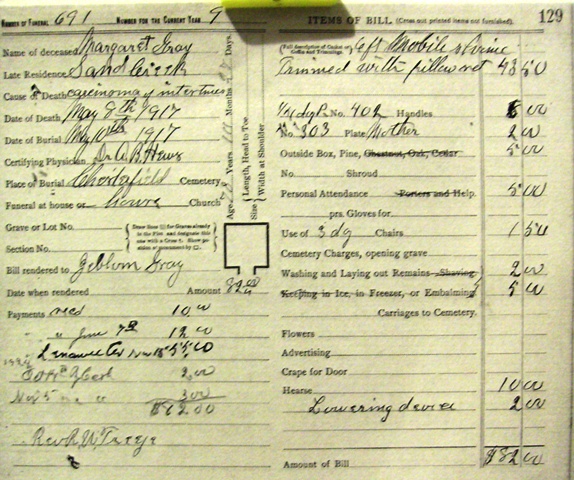 NUMBER OF FUNERAL 691 NUMBER FOR THE CURRENT YEAR 9
Name of deceased Margaret Gray
Late Residence Sand Creek
Cause of Death carcinoma of intestines
Date of Death May 8th 1917
Date of Burial May 10th 1917
Certifying Physician Dr
Place of Burial Chesterfield Cemetery
Funeral at house or Church
Grave or Lot No.
Section No.
(Draw lines for Graves already in the Plot and designate this one with a Cross. Show position of monument by .)
Bill rendered to Gray
Date when rendered Amount 82.00
Payments recd 10.00
" June 7th 12.00
Lenawee Co Nov 55.00
2.00
Nov 5 " " 3.00
$82.00
Rev R W
Age Years Months Days
Size { Length, Head to Toe
Width at Shoulder
ITEMS OF BILL (Cross out printed items not furnished). 129
(Full description of Casket or Coffin and Trimmings.)
Trimmed with pillow set 43 50
No. 402 Handles 6 00
No. 303 Plate Mother 2 00
Outside Box, Pine, Chestnut, Oak, Cedar 5 00
No. Shroud
Personal Attendance Porters and Help. 5 00
prs. Gloves for
Use of 3 dg Chairs 1 50
Cemetery Charges, opening grave
Washing and Laying out Remains Shaving 2 00
Keeping in Ice, in Freezer, or Embalming 5 00
Carriages to Cemetery.
Flowers
Advertising
Crape for Door
Hearse 10 00
Lowering device 2 00
Amount of Bill $82 00